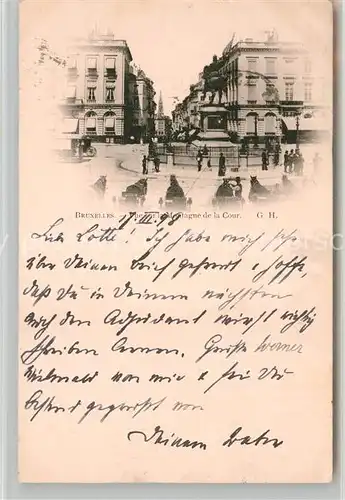 BRUXELLES. — Rue et Montagne de la Cour. G. H.
III. 98
Liebe Lotte! Ich habe mich sehr
über Deinen Brief gefreut u. hoffe,
daß Du in Deinem nächsten
auch den wirst richtig
schreiben können. Grüße Werner
von mir u. sei Du
bestens gegrüßt von
Deinem Vater